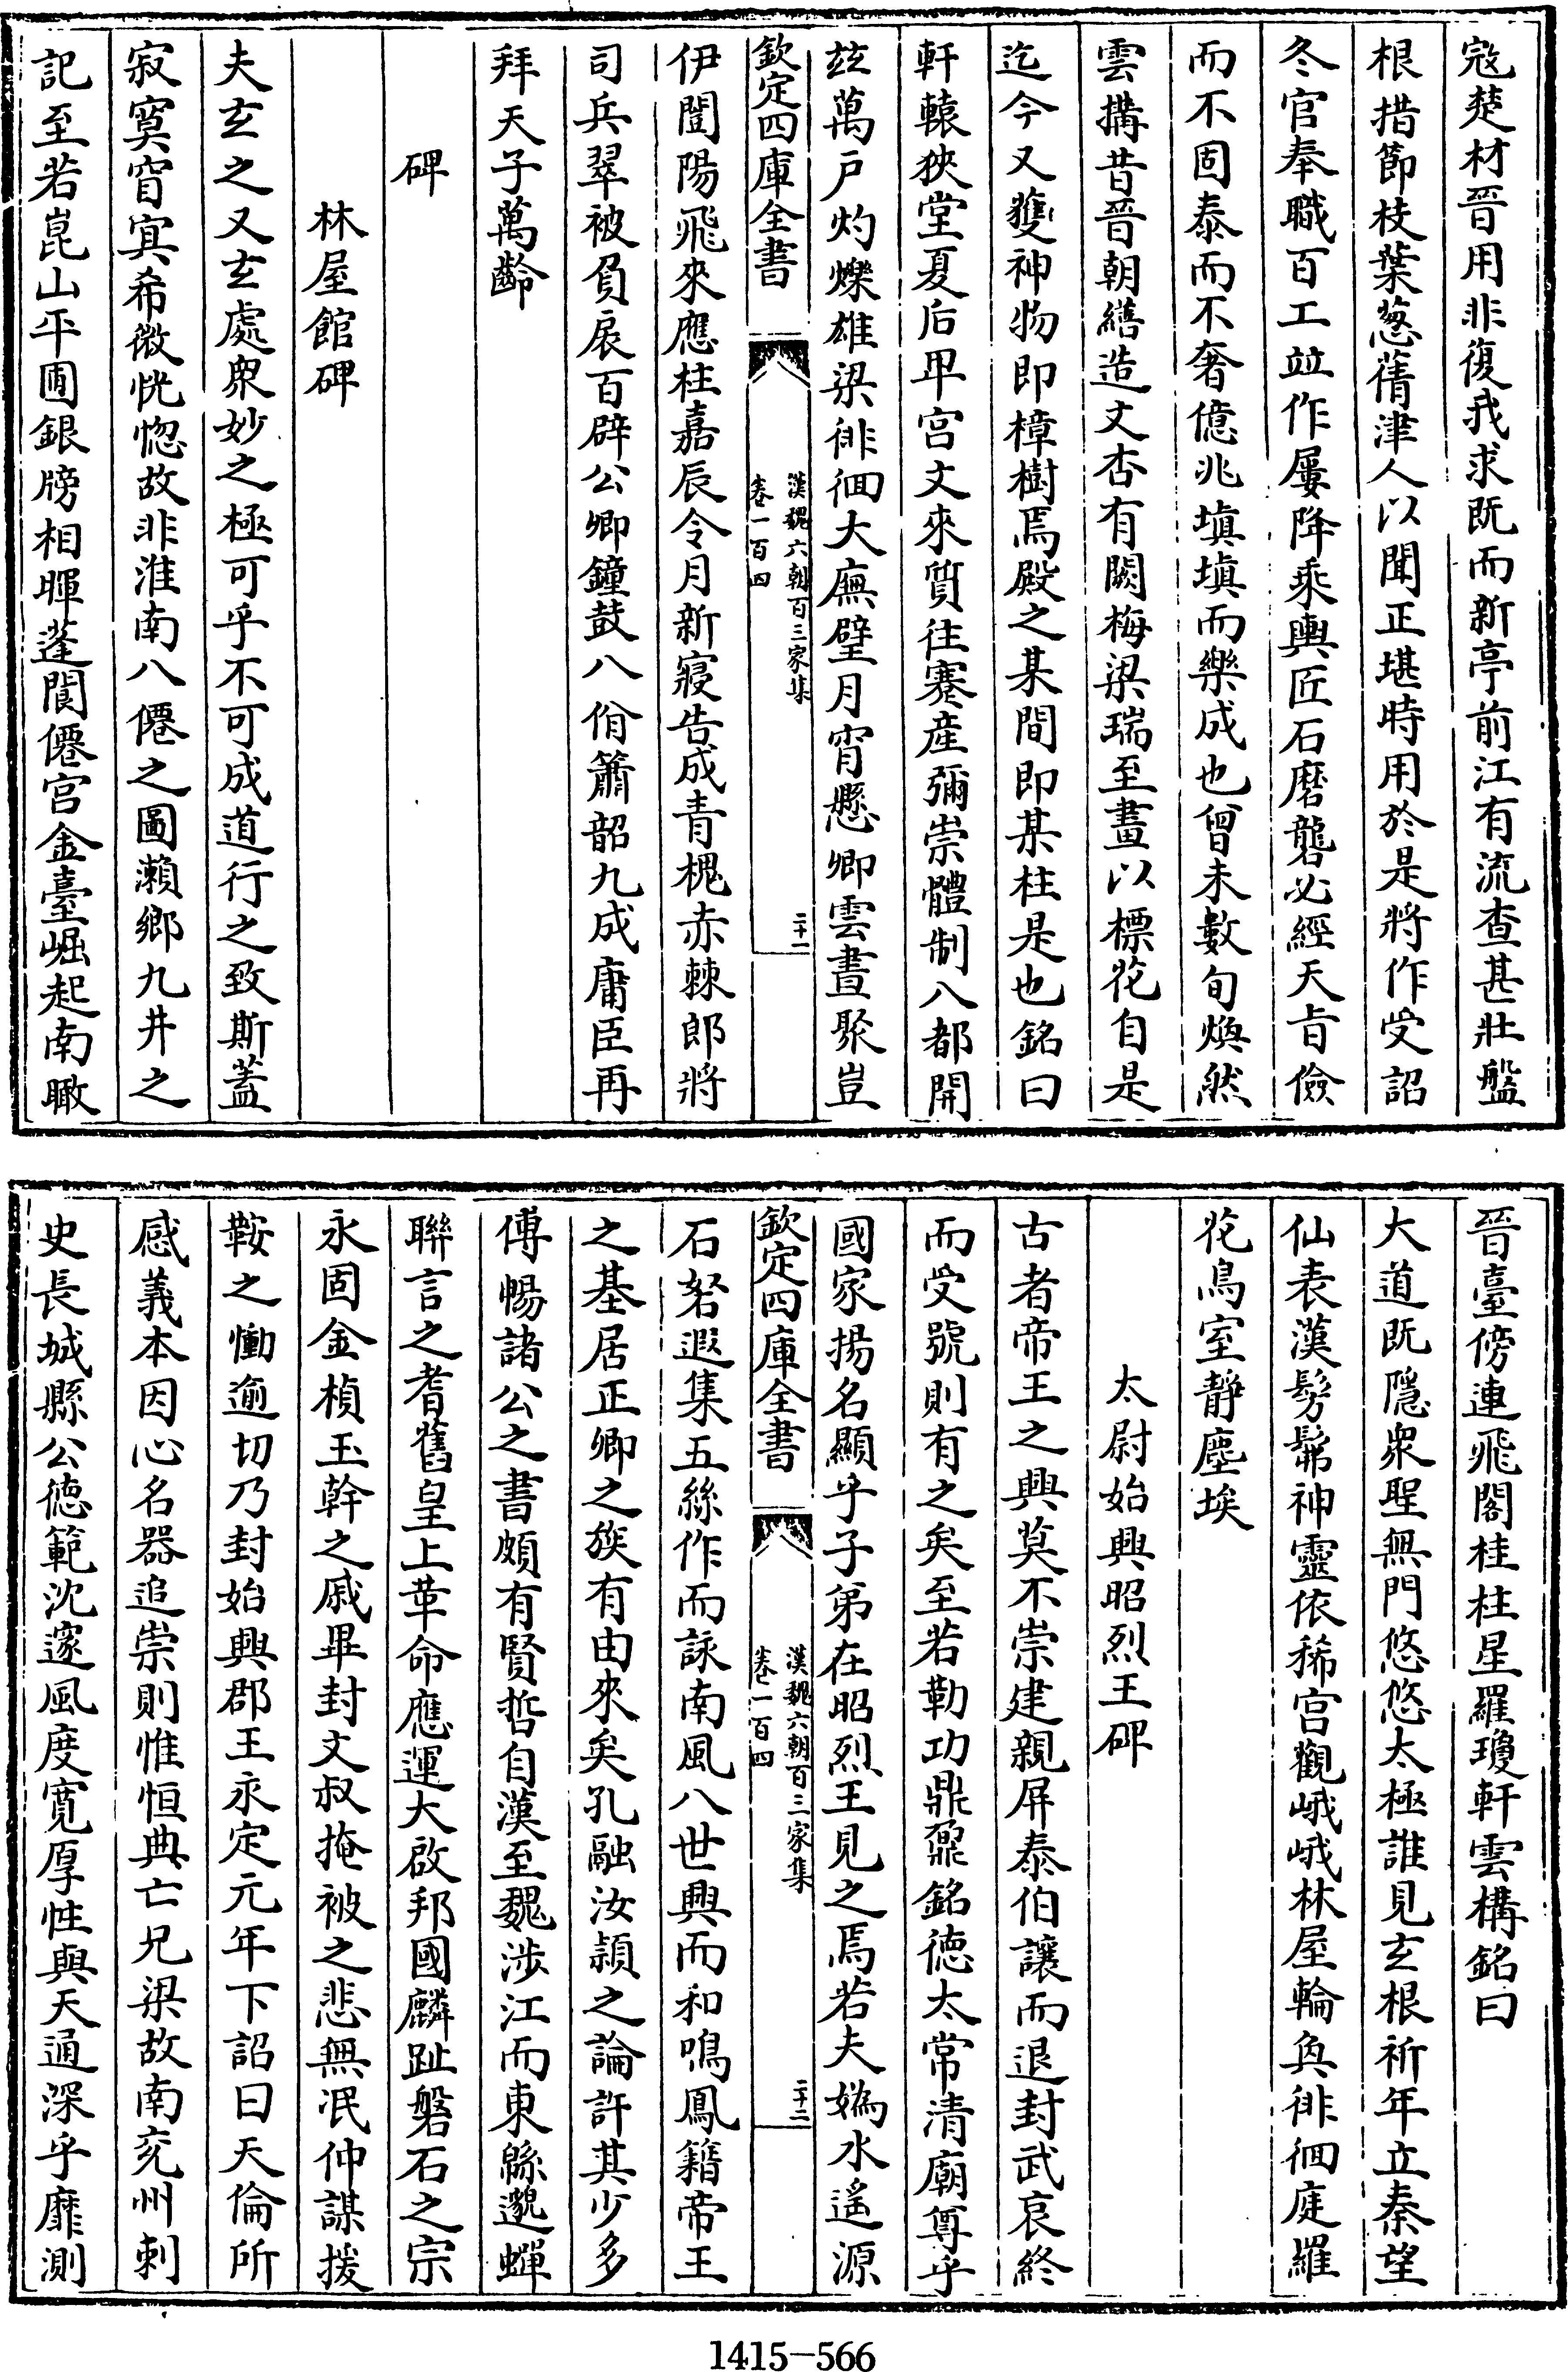 寇楚材晉用非復我求既而新亭前江有流查甚壯盤
根措節枝葉葱蒨津人以聞正堪時用於是將作受詔
冬官奉職百工竝作屢降乘輿匠石磨礲必經天旨儉
而不固泰而不奢億兆塡塡而樂成也曾未數旬煥然
雲搆昔晉朝繕造文杏有闕梅梁瑞至畫以標花自是
迄今又獲神物即樟樹焉殿之某間即某柱是也銘曰
軒轅狹堂夏后卑宮文來質往蹇產彌崇體制八都開
茲萬戶灼爍雄梁徘徊大廡璧月宵懸卿雲晝聚豈
欽定四庫全書
漢魏六朝百三家集
卷一百四
二十一
伊闓陽飛來應柱嘉辰令月新寢告成青槐赤棘郎將
司兵翠被負扆百辟公卿鐘鼓八佾簫韶九成庸臣再
拜天子萬齡
碑
林屋館碑
夫玄之又玄處衆妙之極可乎不可成道行之致斯蓋
寂寞窅冥希微恍惚故非淮南八僊之圖瀨鄉九井之
記至若崑山平圃銀牓相暉蓬閬僊宮金臺崛起南瞰
晉臺傍連飛閣桂柱星羅瓊軒雲構銘曰
大道既隱衆聖無門悠悠太極誰見玄根祈年立秦望
仙表漢髣髴神靈依稀宮觀峨峨林屋輪奐徘徊庭羅
花鳥室靜塵埃
太尉始興昭烈王碑
古者帝王之興莫不崇建親屏泰伯讓而退封武哀終
而受號則有之矣至若勒功鼎鼐銘徳太常清廟尊乎
國家揚名顯乎子弟在昭烈王見之焉若夫媯水遙源
欽定四庫全書
漢魏六朝百三家集
卷一百四
二十二
石砮遐集五絲作而詠南風八世興而和鳴鳳籍帝王
之基居正卿之族有由來矣孔融汝潁之論許其少多
傅暢諸公之書頗有賢哲自漢至魏涉江而東緜邈蟬
聯言之耆舊皇上革命應運大啟邦國麟趾磐石之宗
永固金楨玉幹之戚畢封文叔掩被之悲無泯仲謀援
鞍之慟逾切乃封始興郡王永定元年下詔曰天倫所
感義本因心名器追崇則惟恒典亡兄梁故南兖州刺
史長城縣公徳範沈邃風度寛厚性與天通深乎靡測
1415-566